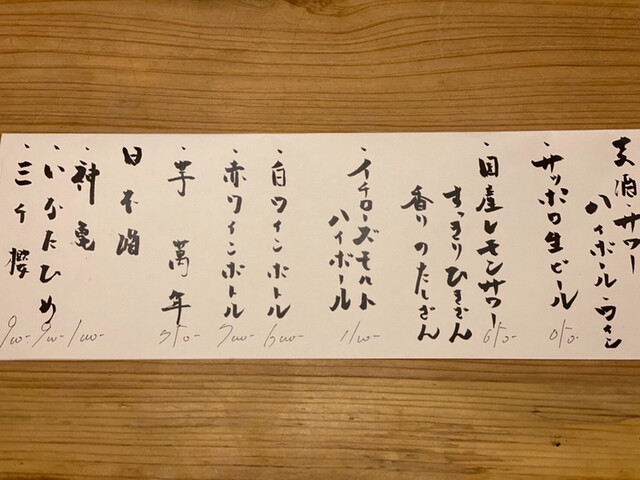 麦酒・サワー
ハイボール・ワイン
・サッポロ生ビール
・国産レモンサワー 650-
すっきりひまざん
香りのたしざん
・イチローズモルト
ハイボール 1100-
・白ワインボトル
・赤ワインボトル
・芋 萬年
日本酒
・神亀 1000-
・いなたひめ 900-
・三千櫻 900-